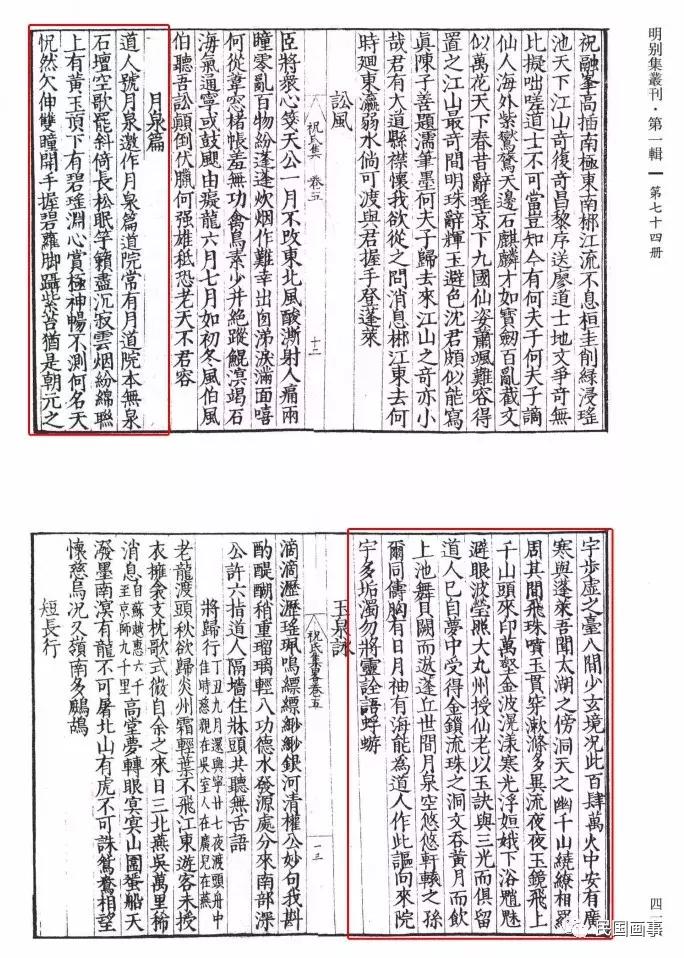 明別集叢刊·第一輯 | 第七十四册
祝融峯高插南極東南郴江流不息桓圭削綠浸瑤
池天下江山奇復奇昌黎序送廖道士地文爭奇無
比擬咄嗟道士不可當豈如今有何夫子何夫子謫
仙人海外紫鸑鷟天邊石麒麟才如寶劒百亂截文
似萬花天下春昔辭瑤京下九國仙姿蕭颯難容得
置之江山最奇間明珠辭輝玉避色沈君頗似能寫
真陳子善題濡筆墨何夫子歸去來江山之奇亦小
哉君有大道縣襟懷我欲從之問消息郴江東去何
時廻東瀛弱水倘可渡與君握手登蓬萊
訟風
祝氏集 卷五
十二
臣將衆心箋天公一月不改東北風酸澌射人痛兩
瞳零亂百物紛蓬蓬炊烟作難幸出囱涕淚滿面嘻
何從葦窓楮帳羞無功禽鳥素少并絕蹤鯤溟竭石
海氣通寧或鼓颶由癡龍六月七月如初冬風伯風
伯聽吾訟顛倒伏臘何强雄秪恐老天不君容
月泉篇
道人號月泉邀作月泉篇道院常有月道院本無泉
石壇空歌罷斜倚長松眠竽籟盡沉寂雲烟紛綿聯
上有黃玉頂下有碧瑤淵心賞極神暢不測何名天
怳然欠伸雙瞳開手握碧蘿脚躡紫苔猶是朝元之
宇步虛之臺八開少玄境況此百肆萬火中安有廣
寒與蓬萊吾聞太湖之傍洞天之幽千山繞繚相羅
周其間飛珠噴玉貫穿漱滌多異流夜夜玉鏡飛上
千山頭來印萬壑金波滉漾寒光浮姮娥下浴魑魅
避眼波瑩照大九州授仙老以玉訣與三光而俱留
道人已自夢中受得金鎖流珠之洞文吞黃月而飲
上池舞貝闕而遨蓬丘世間月泉空悠悠軒轅之孫
爾同儔胸有日月袖有海能為道人作此謳向來院
宇多垢濁勿將靈詮語蜉蝣
玉泉詠
祝氏集畧卷五
一三
滴滴瀝瀝瑤珮鳴縹縹緲緲銀河清權公妙句我斟
酌醍醐稍重瑠璃輕八功德水發源處分來南部深
公許六指道人隔墻住牀頭共聽無舌語
將歸行 丁丑九月還興寧廿七夜渡頭舟中
佳時慈親在吳室人在廣兒在燕
老龍渡頭秋欲歸炎州霜輕葉不飛江東遊客未授
衣擁衾支枕歌式微自余之來日三北燕吳萬里稀
消息 自蘇越惠六千
至京師九千里 高堂夢轉眼冥冥山圍蜑船天
潑墨南溟有龍不可屠北山有虎不可誅鴛鴦相望
懷慈烏況又嶺南多鷓鴣
短長行
四一
民国画事